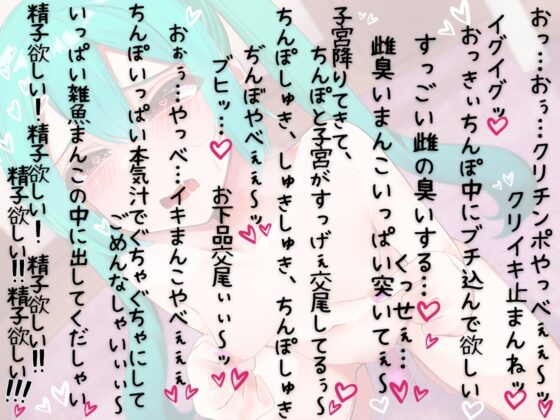 おっ…おぅ…クリチンポやっべぇぇ〜ッ
クリイキ止まんねッ
イグイグッ
おっきぃちんぽ中にブチ込んで欲しい
すっごい雌の臭いする…
くっせぇ…
雌臭いまんこいっぱい突いてぇ〜
子宮降りてきて、
ちんぽと子宮がすっげぇ交尾してるぅ〜
ちんぽしゅき、しゅきしゅき、ちんぽしゅき
ぢんぼやべぇぇ〜ッ
ブヒッ…
お下品交尾ぃぃ〜ッ
おぉぅ…やっべ…イキまんこやべぇぇぇ
ちんぽいっぱい本気汁でぐちゃぐちゃにして
ごめんなしゃいぃぃ〜
いっぱい雑魚まんこの中に出してくだしゃい
精子欲しい！精子欲しい！精子欲しい!!
精子欲しい!!精子欲しい!!!